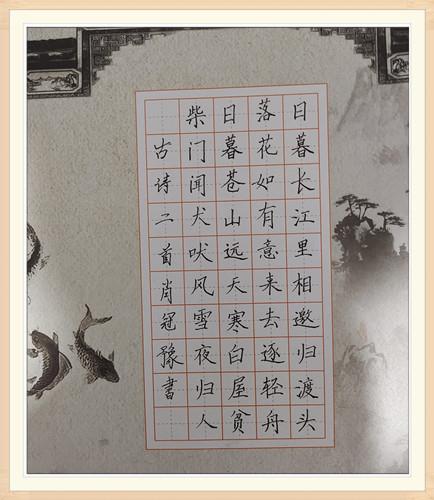 日暮长江里相邀归渡头
落花如有意来去逐轻舟
日暮苍山远天寒白屋贫
柴门闻犬吠风雪夜归人
古诗二首肖冠豫书